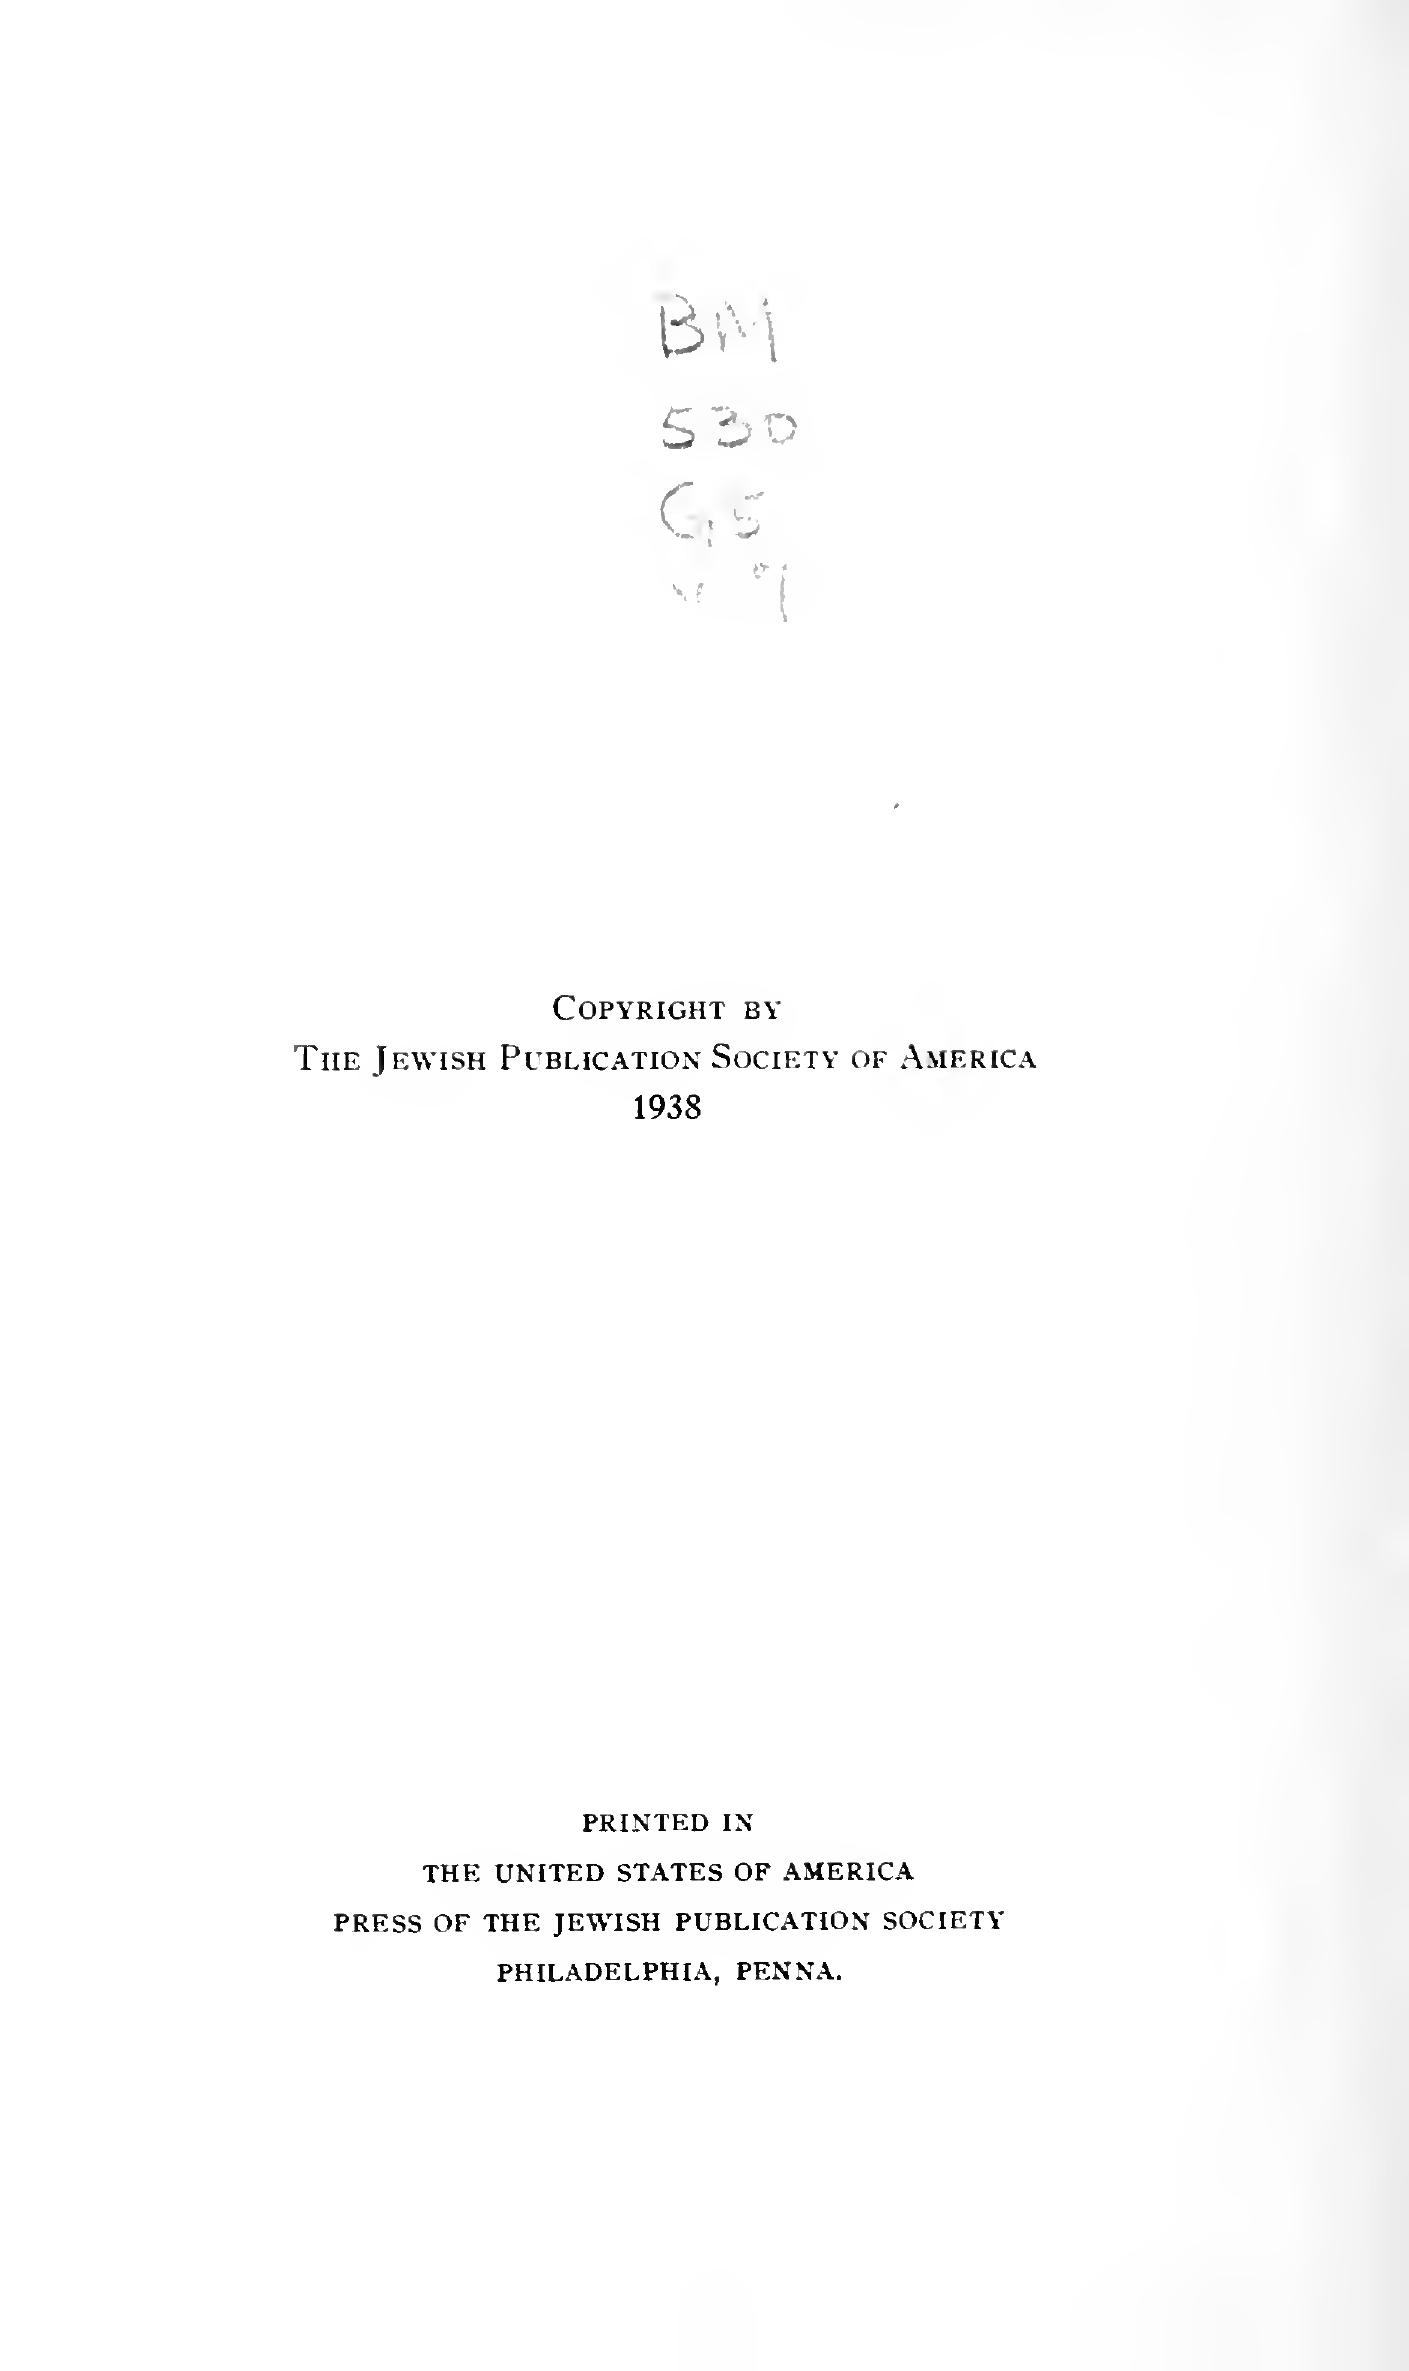 BM
530
G5
Copyright by
The Jewish Publication Society of America
1938
PRINTED IN
THE UNITED STATES OF AMERICA
PRESS OF THE JEWISH PUBLICATION SOCIETY
PHILADELPHIA, PENNA.